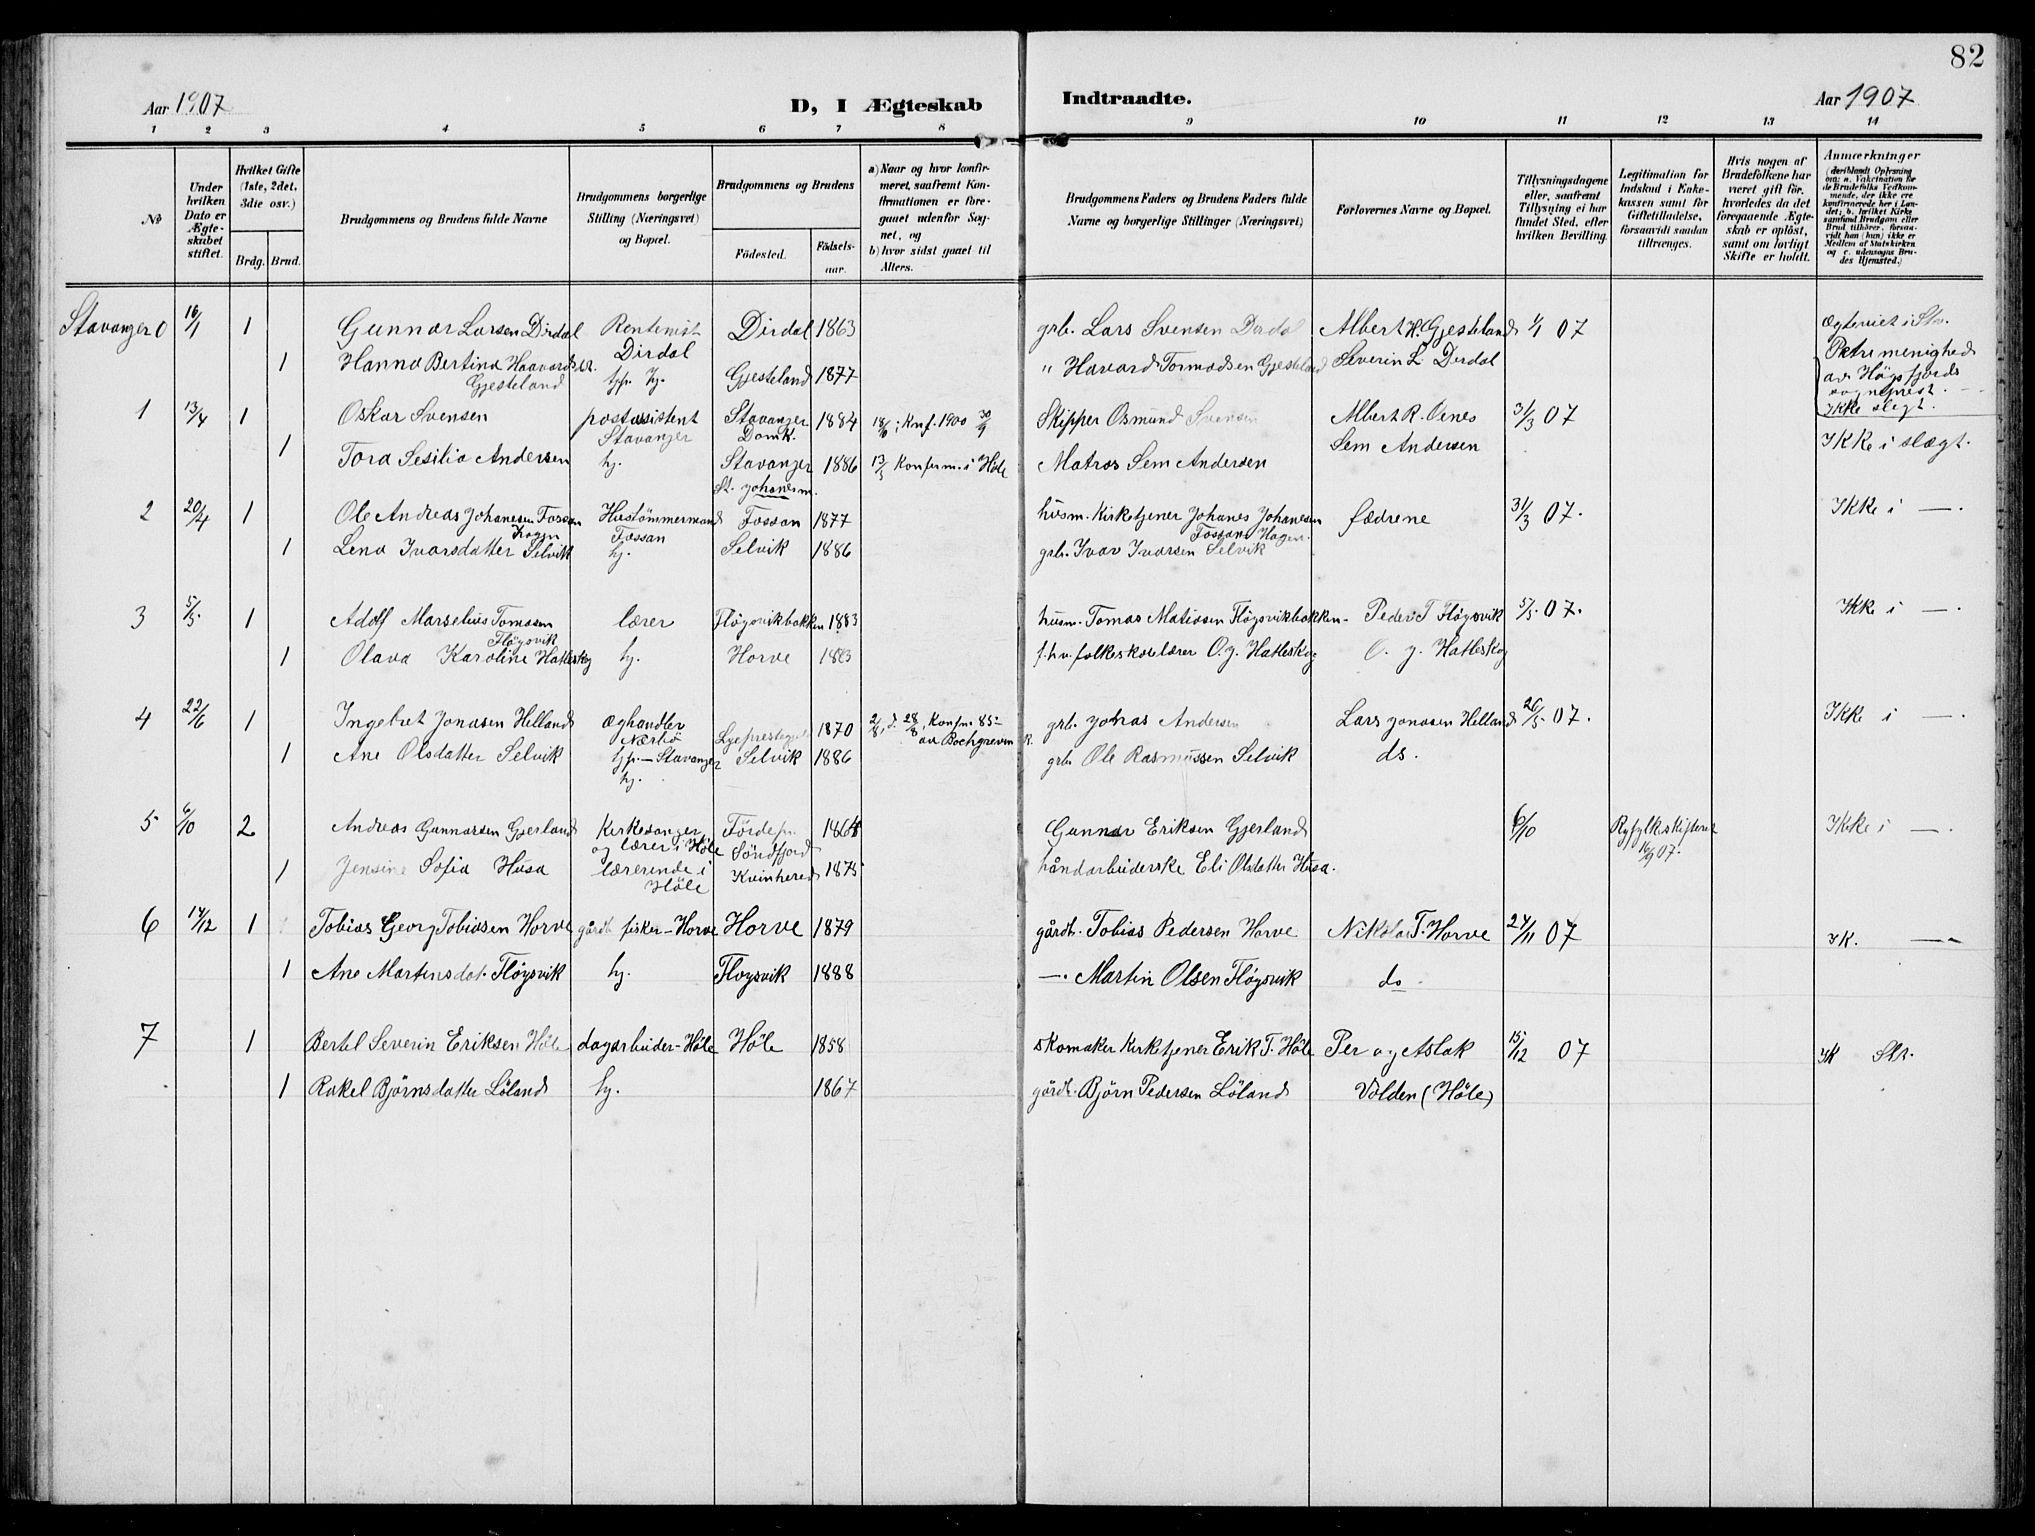 82
Aar 1907
D, I Ægteskab
Indtraadte.
Aar 1907
1 2 3 4 5 6 7 8 9 10 11 12 13 14
№
Under hvilken Dato er Ægteskabet stiftet.
Hvilket Gifte (1ste, 2det, 3die osv.)
Brdg. Brud.
Brudgommens og Brudens fulde Navne
Brudgommens borgerlige Stilling (Næringsvei) og Bopæl.
Brudgommens og Brudens
Fødested.
Fødselsaar.
a) Naar og hvor konfirmeret, saafremt Konfirmationen er foregaaet udenfor Sognet, og
b) hvor sidst gaaet til Alters.
Brudgommens Faders og Brudens Faders fulde Navne og borgerlige Stillinger (Næringsvei)
Forlovernes Navne og Bopæl.
Tillysningsdagene eller, saafremt Tillysning ei har fundet Sted, efter hvilken Bevilling.
Legitimation for Indskud i Enkekassen samt for Giftetilladelse, forsaavidt saadan tiltrænges.
Hvis nogen af Brudefolkene har været gift før, hvorledes da det foregaaende Ægteskab er opløst, samt om lovligt Skifte er holdt.
Anmærkninger
(deriblandt Oplysning om: a. Vakcination for de Brudefolks Vedkommende, der ikke ere konfirmerede her i Landet; b. hvilket Kirkesamfund Brudgom eller Brud tilhører, forsaavidt han (hun) ikke er Medlem af Statskirken og c. udensogns Brudes Hjemsted.)
Stavanger 0 16/1 1 Gunnar Larsen Dirdal Rentenist Dirdal 1863 grb. Lars Svensen Dirdal Albert H. Gjesteland 1/1 07 Ægteviet i Stv.
Dirdal Petri menighed
1 Hanna Bertina Haavardsdtr. Gjesteland Gjesteland 1877 " Havard Tormodsen Gjesteland Severin L. Dirdal av Høgsfjords sogneprest.
Ikke slegt.
1 13/4 1 Oskar Svensen postassistent Stavanger 1884 18/6; Knf. 1900 30/9 Skipper Osmund Svensen Albert R. Oenes 31/3 07
Stavanger Domk.
1 Tora Sesilia Andersen hj. Stavanger 1886 13/3 Konferm. i Høle Matros Sem Andersen Sem Andersen Ikke i slægt.
St. Johanesm.
2 20/4 1 Ole Andreas Johanesen Fossan Hustømmermand Fossan 1877 husm. Kirketjener Johanes Johanesen fædrene 31/3 07. Ikke i —.
Hagen Fossan Fossan Hagen.
1 Lena Ivarsdatter Selvik hj. Selvik 1886 grb. Ivar Ivarsen Selvik
3 5/5 1 Adolf Marselius Tomasen lærer Fløysvikbakken 1883 husm. Tomas Matiasen Fløysvikbakken Peder T Fløysvik 5/5 07. Ikke i —.
Fløysvik
1 Olava Karoline Hatleskog hj. Horve 1883 f.hv. folkeskolelærer O. J. Hatleskog O. J. Hatleskog
4 22/6 1 Ingebret Jonasen Helland Æghandler Lyeprestegjeld 1870 2/8, d. 28/8, Konfm. 85 grb. Jonas Andersen Lars Jonasen Helland 26/5 07. Ikke i —.
Nærbø av Bochgrevink.
1 Ane Olsdatter Selvik tjp. – Stavanger Selvik 1886 grb. Ole Rasmussen Selvik ds.
hj.
5 6/10 2 Andreas Gunnarsen Gjerland Kirkesanger Førde pr. 1868 Gunnar Eriksen Gjerland 6/10 Ryfylk. skifteret Ikke i —.
og lærer i Høle Søndfjord 16/9 07.
1 Jensine Sofia Husa lærerinde i Kvinhered 1875 håndarbeiderske Eli Olsdatter Husa.
Høle
6 14/12 1 Tobias Georg Tobiasen Horve gårdb. fisker – Horve Horve 1879 gårdb. Tobias Pedersen Horve Nikolai T. Horve 24/11 07 IK. —
1 Ane Martinsdat. Fløysvik hj. Fløysvik 1888 —. Martin Olsen Fløysvik do
7 1 Bertel Severin Eriksen Høle dagarbeider – Høle Høle 1858 skomaker Kirketjener Erik T. Høle Per og Aslak 15/12 07 IK Skr.
1 Rakel Bjørnsdatter Løland hj. 1867 gårdb. Bjørn Pedersen Løland Volden (Høle)